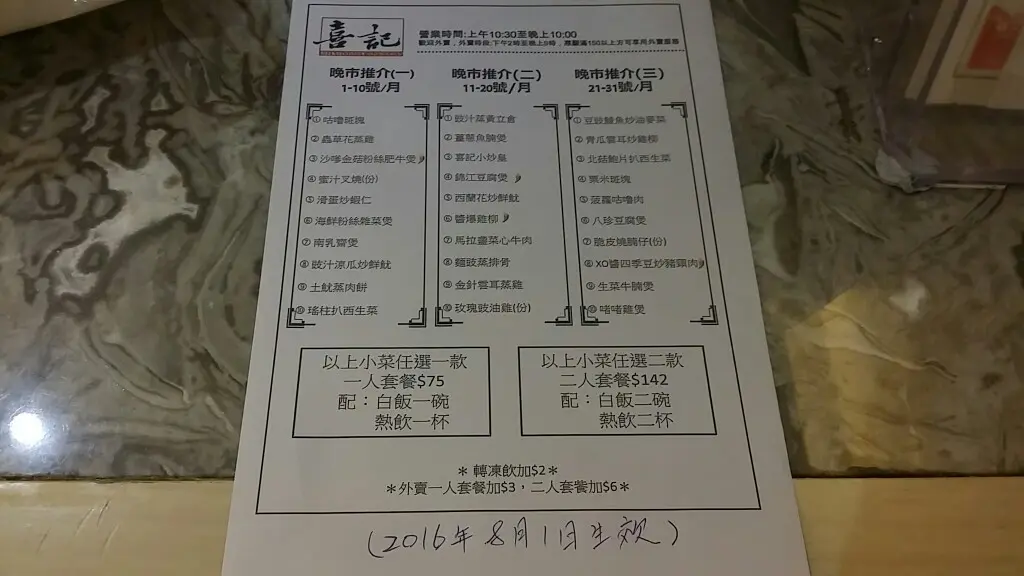 喜記
營業時間:上午10:30至晚上10:00
歡迎外賣，外賣時段:下午2時至晚上9時，惠顧滿150以上方可享用外賣服務
晚市推介(一)
1-10號/月
①咕嚕斑塊
②蟲草花蒸雞
③沙嗲金菇粉絲肥牛煲
④蜜汁叉燒(份)
⑤滑蛋炒蝦仁
⑥海鮮粉絲雜菜煲
⑦南乳齋煲
⑧豉汁涼瓜炒鮮魷
⑨土魷蒸肉餅
⑩瑤柱扒西生菜
晚市推介(二)
11-20號/月
①豉汁蒸黃立倉
②薑蔥魚腩煲
③喜記小炒皇
④錦江豆腐煲
⑤西蘭花炒鮮魷
⑥醬爆雞柳
⑦馬拉盞菜心牛肉
⑧麵豉蒸排骨
⑨金針雲耳蒸雞
⑩玫瑰豉油雞(份)
晚市推介(三)
21-31號/月
①豆豉鯪魚炒油麥菜
②青瓜雲耳炒雞柳
③北菇鮑片扒西生菜
④粟米斑塊
⑤菠蘿咕嚕肉
⑥八珍豆腐煲
⑦脆皮燒腩仔(份)
⑧XO醬四季豆炒豬頸肉
⑨生菜牛腩煲
⑩啫啫雞煲
以上小菜任選一款
一人套餐$75
配：白飯一碗
熱飲一杯
以上小菜任選二款
二人套餐$142
配：白飯二碗
熱飲二杯
＊轉凍飲加$2＊
＊外賣一人套餐加$3，二人套餐加$6＊
(2016年8月1日生效)